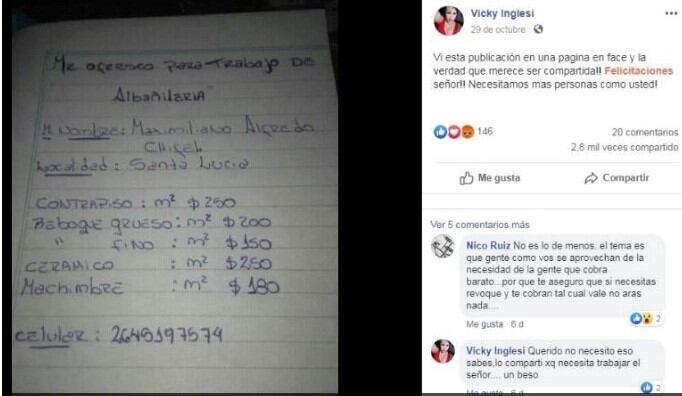 Me ofresco para trabajo DE
Albañileria
Mi Nombre: Maximiliano Alfredo
Localdad: Santa Lucia
CONTRAPISO: m² $ 250
Reboque grueso: m² $ 200
" fino : m² $ 150
CERAMICO : m² $ 250
Machimbre : m² $ 180
celular: 2645197574
Vicky Inglesi
29 de octubre ·
Vi esta publicación en una pagina en face y la
verdad que merece ser compartida!! Felicitaciones
señor!! Necesitamos mas personas como usted!
146
20 comentarios
2,8 mil veces compartido
Me gusta
Compartir
Ver 5 comentarios más
Nico Ruiz No es lo de menos. el tema es
que gente como vos se aprovechan de la
necesidad de la gente que cobra
barato...por que te aseguro que si necesitas
revoque y te cobran tal cual vale no aras
nada....
2
Me gusta · 6 d
Vicky Inglesi Querido no necesito eso
sabes,lo comparti xq necesita trabajar el
señor.... un beso
2